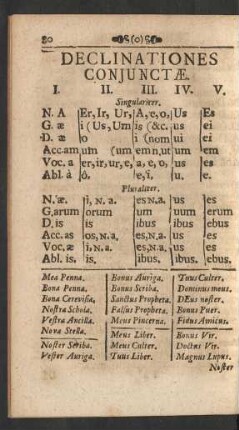 80 (o)
DECLINATIONES
CONJUNCTÆ.
I. II. III. IV. V.
Singulariter.
N. A Er, Ir, Ur, A, e, o, Us Es
G. æ i (Us, Um is (&c. us ei
D. æ o i (nom ui ei
Acc. am um (um em n,ut um em
Voc. a er, ir, ur, e, a, e, o, us es
Abl. â ô. e, i, u. e.
Pluraliter.
N. æ. i, N. a. es N.a. us es
G. arum orum um uum erum
D. is is ibus ibus ebus
Acc. as os, N. a. es, N.a. us es
Voc. æ i, N. a. es, N.a. us es
Abl. is. is. ibus. ibus. ebus.
Mea Penna. Bonus Auriga. Tuus Culter.
Bona Penna. Bonus Scriba. Dominus meus.
Bona Cerevisia, Sanctus Propheta. DEus noster.
Nostra Schola. Falsus Propheta. Bonus Puer.
Vestra Ancilla. Meus Pincerna. Fidus Amicus.
Nova Stella.
Meus Liber. Bonus Vir.
Noster Scriba. Meus Culter. Doctus Vir.
Vester Auriga. Tuus Liber. Magnus Lupus.
Noster